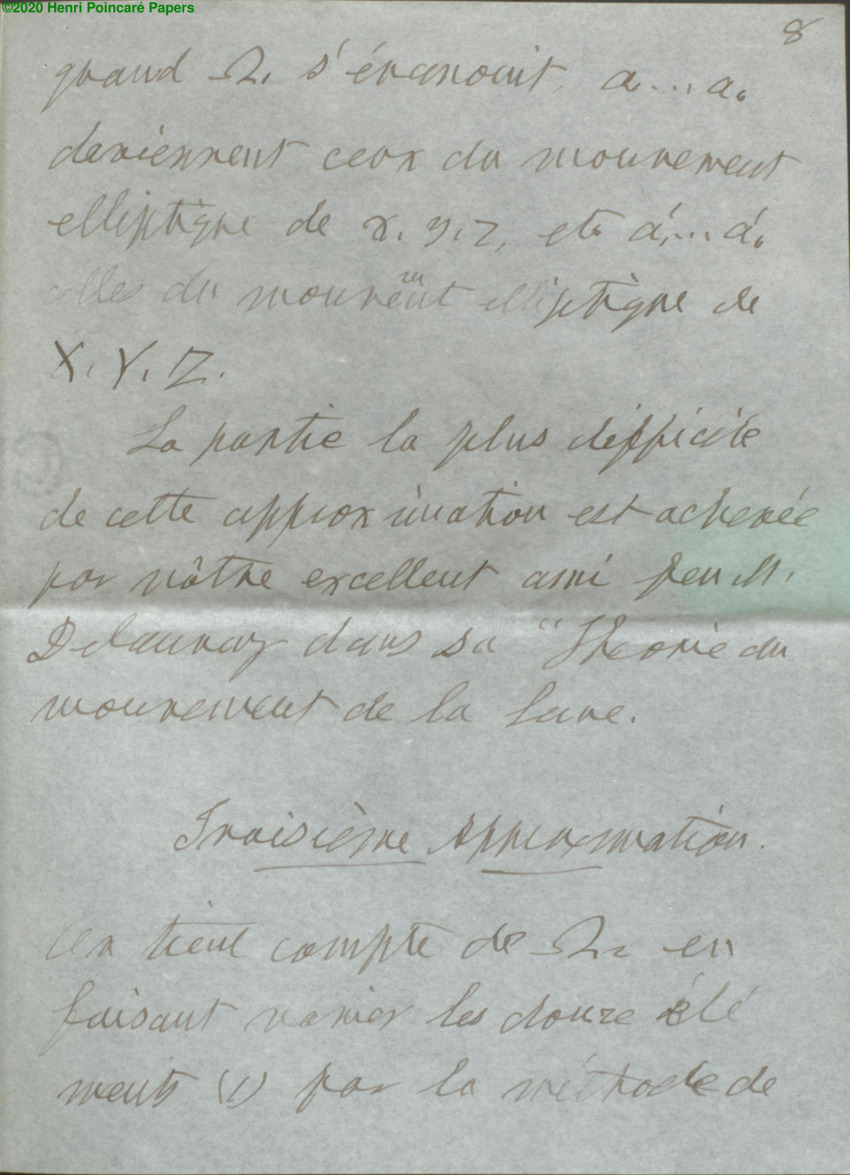 ©2020 Henri Poincaré Papers
8
quand Ω₁ s'évanouit, a...a₆
deviennent ceux du mouvement
elliptique de x, y, z, et a'₁...a'₆
celles du mouvemnt elliptique de
X, Y, Z.
La partie la plus difficile
de cette approximation est achevée
par nôtre excellent ami feu M.
Delaunay dans sa "Théorie du
mouvement de la Lune.
Troisième Approximation.
On tient compte de Ω₂ en
faisant varier les douze élé
ments (1) par la méthode de